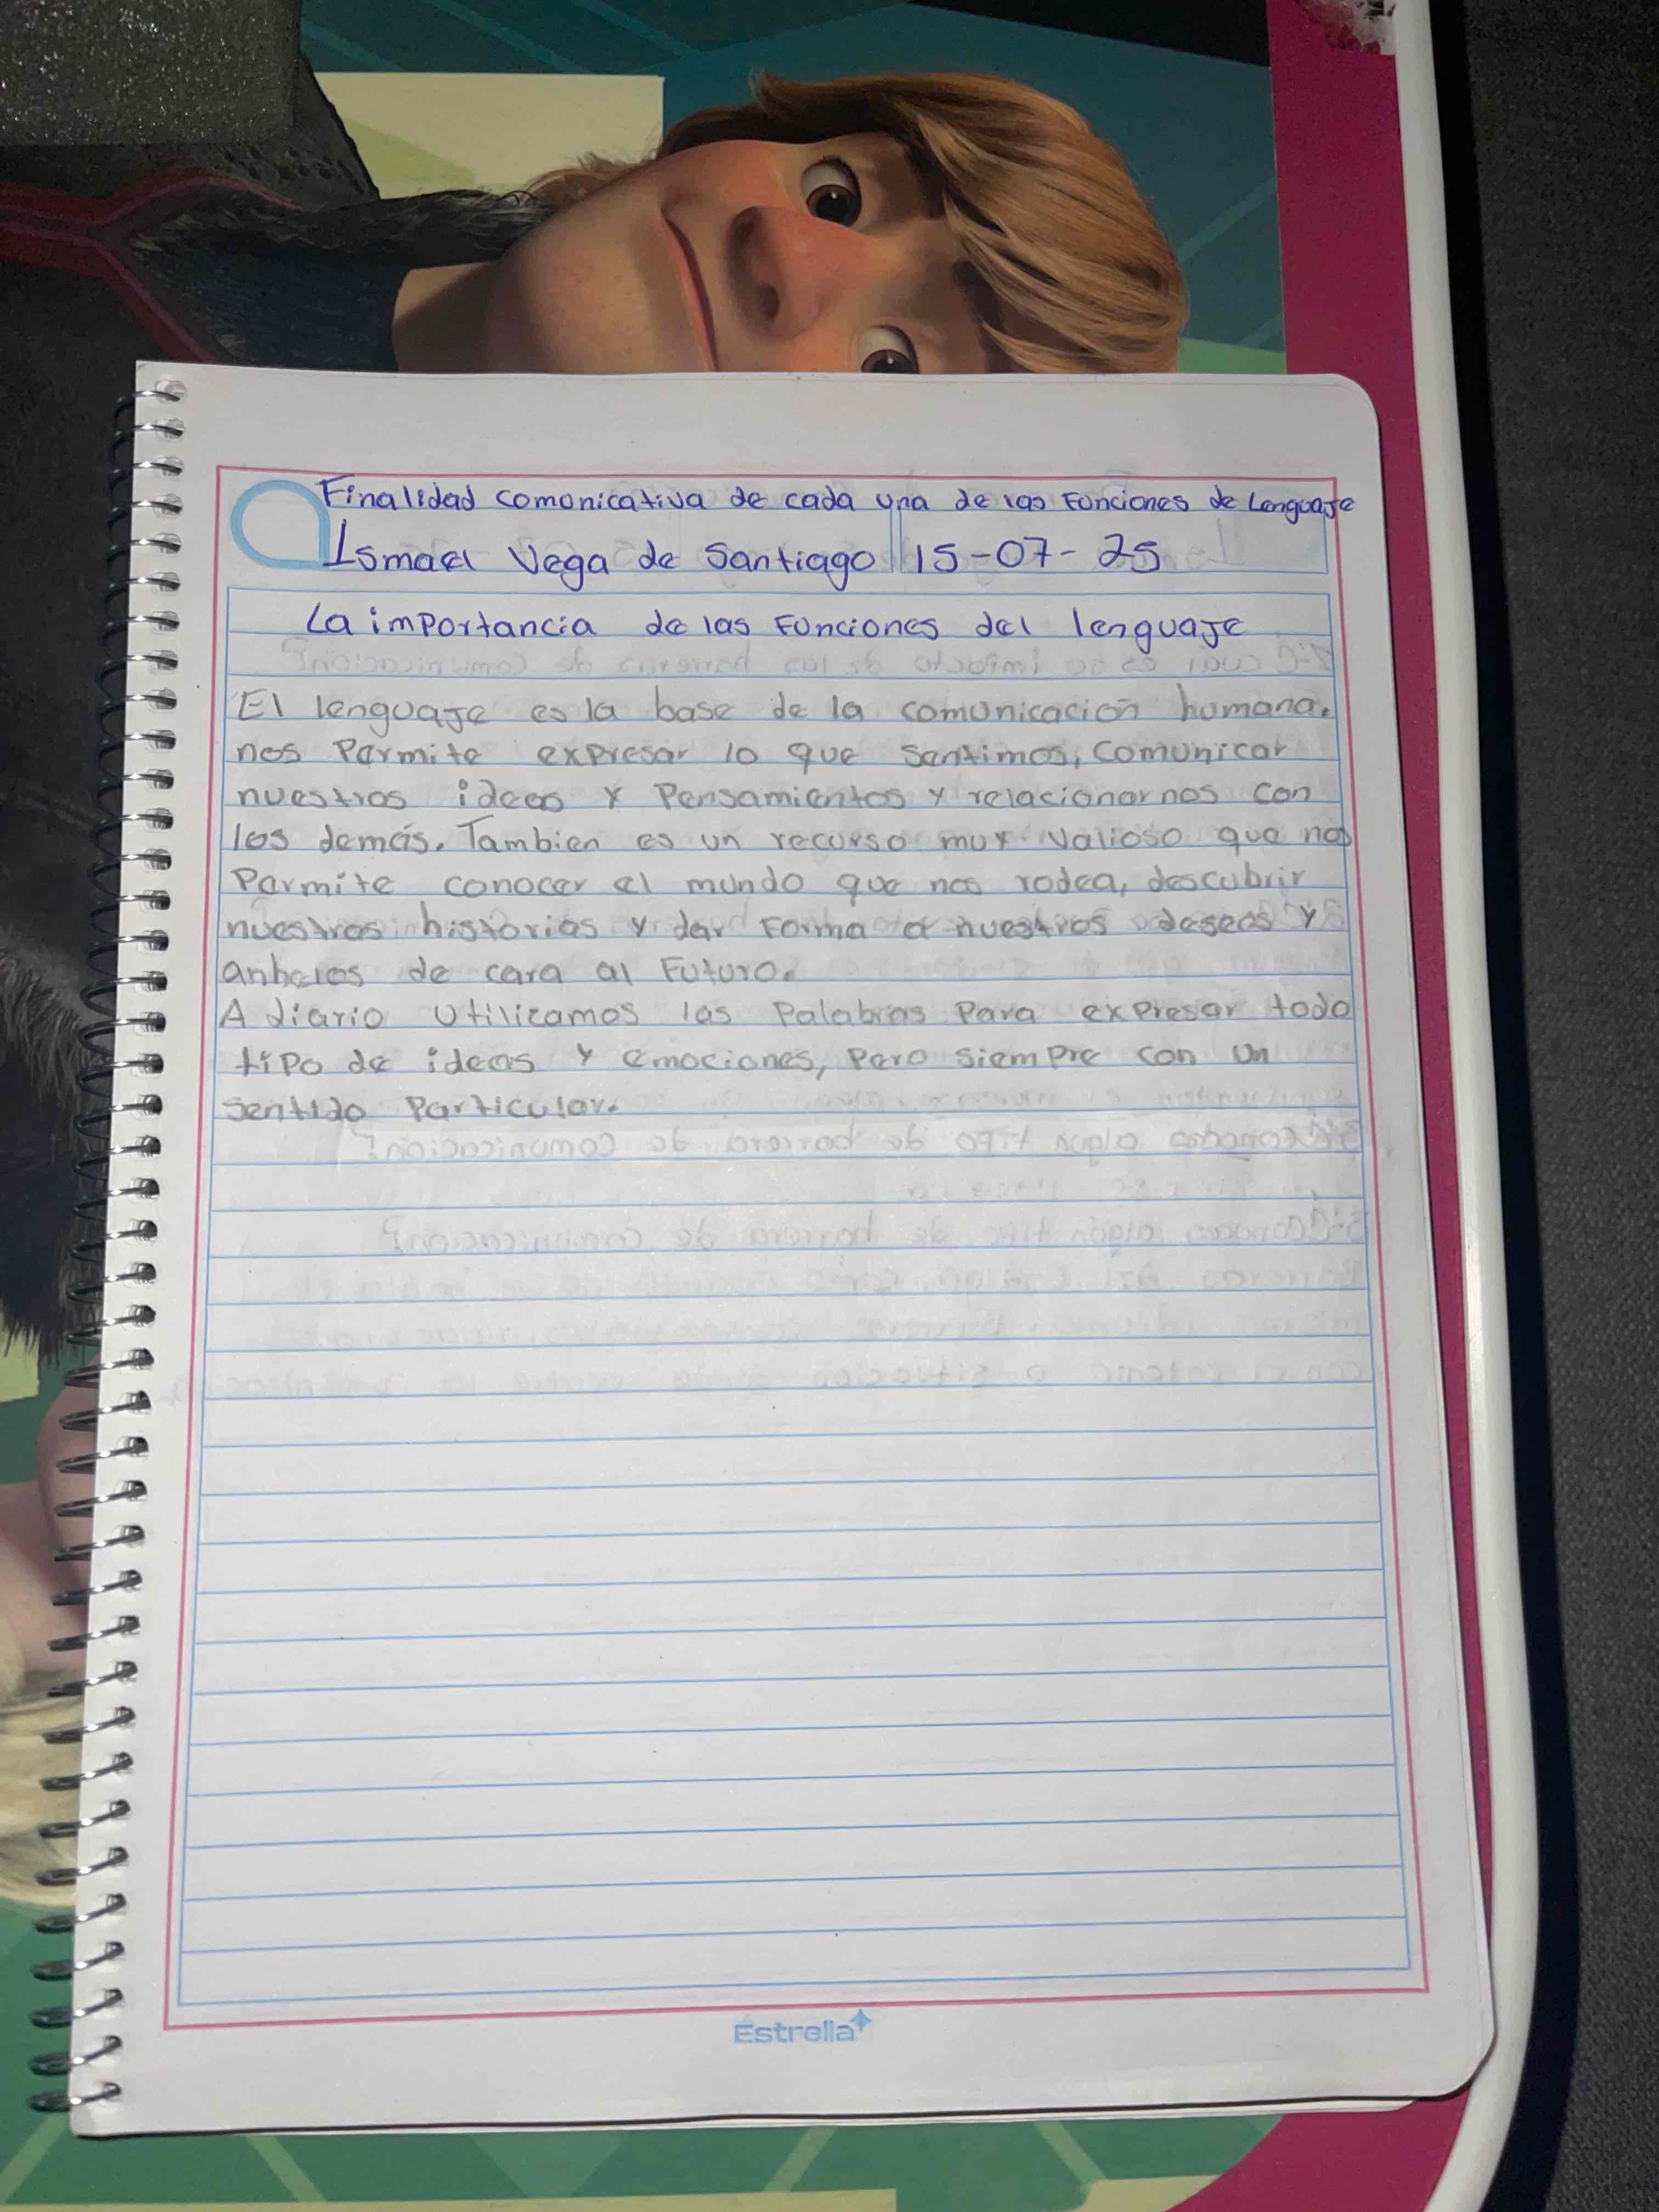 Finalidad comunicativa de cada una de las Funciones de Lenguaje
Ismael Vega de Santiago 15-07-25
La importancia de las Funciones del lenguaje
El lenguaje es la base de la comunicación humana.
nos Permite expresar lo que Sentimos, comunicar
nuestros ideas y Pensamientos y relacionarnos con
los demás. Tambien es un recurso muy valioso que nos
Permite conocer el mundo que nos rodea, descubrir
nuestras historias y dar Forma a nuestros deseos y
anhelos de cara al Futuro.
A diario Utilizamos las Palabras Para expresar todo
tipo de ideas y emociones, Pero siempre con un
sentido Particular.
Estrella